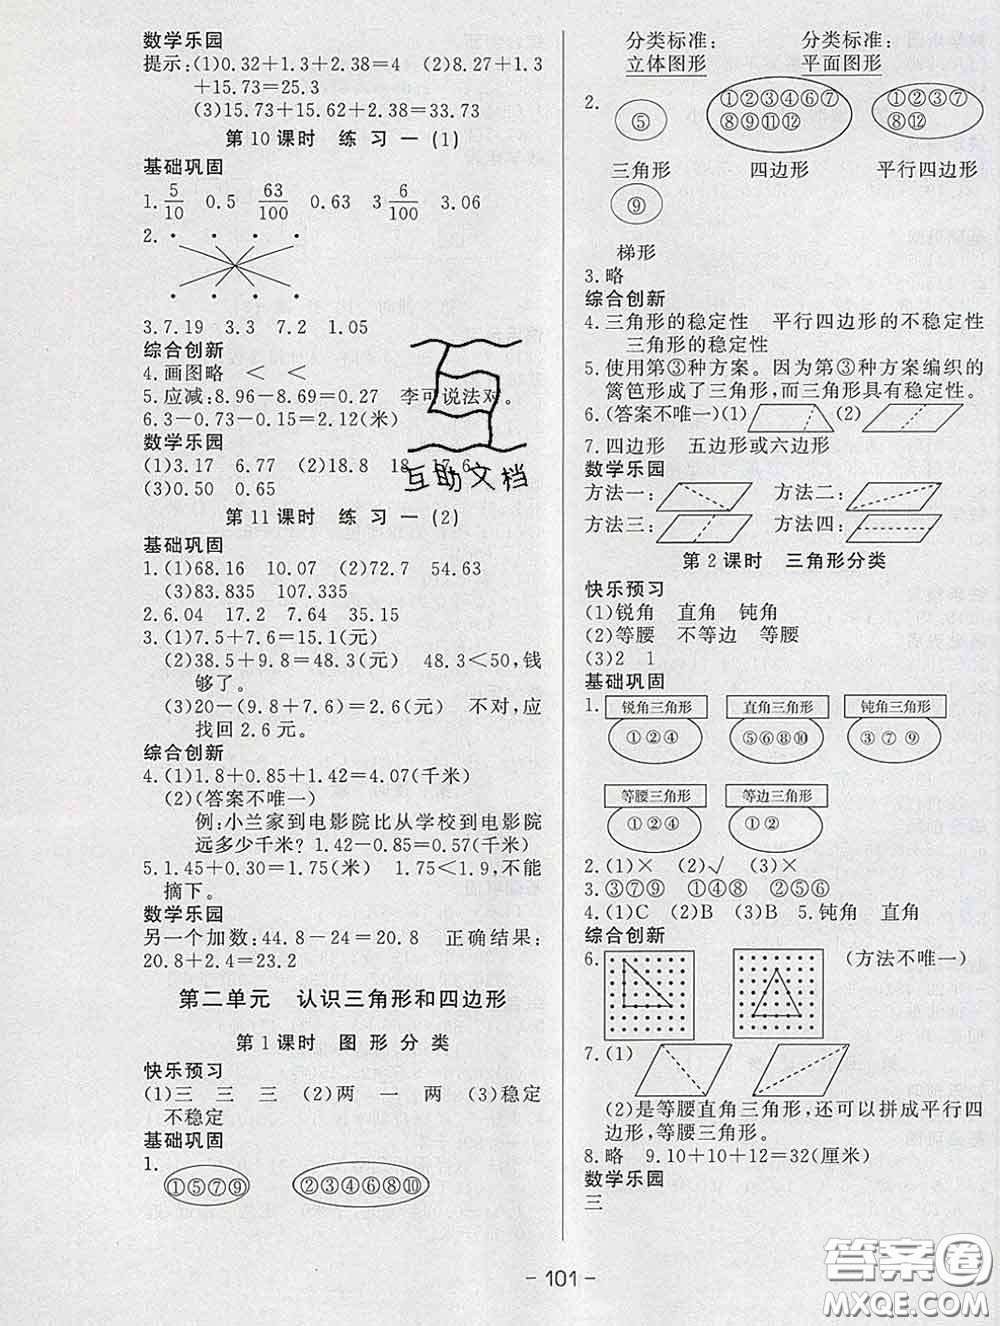 数学乐园
提示:(1)0.32+1.3+2.38=4 (2)8.27+1.3
+15.73=25.3
(3)15.73+15.62+2.38=33.73
第10课时 练习一(1)
基础巩固
1. 5/10 0.5 63/100 0.63 3 6/100 3.06
2.
3.7.19 3.3 7.2 1.05
综合创新
4.画图略 < <
5.应减:8.96-8.69=0.27 李可说法对。
6.3-0.73-0.15=2.12(米)
数学乐园
(1)3.17 6.77 (2)18.8 18 17.6
(3)0.50 0.65
第11课时 练习一(2)
基础巩固
1.(1)68.16 10.07 (2)72.7 54.63
(3)83.835 107.335
2.6.04 17.2 7.64 35.15
3.(1)7.5+7.6=15.1(元)
(2)38.5+9.8=48.3(元) 48.3<50,钱
够了。
(3)20-(9.8+7.6)=2.6(元) 不对,应
找回2.6元。
综合创新
4.(1)1.8+0.85+1.42=4.07(千米)
(2)(答案不唯一)
例:小兰家到电影院比从学校到电影院
远多少千米? 1.42-0.85=0.57(千米)
5.1.45+0.30=1.75(米) 1.75<1.9,不能
摘下。
数学乐园
另一个加数:44.8-24=20.8 正确结果:
20.8+2.4=23.2
第二单元 认识三角形和四边形
第1课时 图形分类
快乐预习
(1)三 三 三 (2)两 一 两 (3)稳定
不稳定
基础巩固
1.
①⑤⑦⑨ ②③④⑥⑧⑩
分类标准: 分类标准:
立体图形 平面图形
2. ⑤ ①②③④⑥⑦ ①②③⑦
⑧⑨⑪⑫ ⑧⑫
三角形 四边形 平行四边形
⑨
梯形
3.略
综合创新
4.三角形的稳定性 平行四边形的不稳定性
三角形的稳定性
5.使用第③种方案。因为第③种方案编织的
篱笆形成了三角形,而三角形具有稳定性。
6.(答案不唯一)(1) (2)
7.四边形 五边形或六边形
数学乐园
方法一: 方法二:
方法三: 方法四:
第2课时 三角形分类
快乐预习
(1)锐角 直角 钝角
(2)等腰 不等边 等腰
(3)2 1
基础巩固
1. 锐角三角形 直角三角形 钝角三角形
①②④ ⑤⑥⑧⑩ ③⑦⑨
等腰三角形 等边三角形
①②④ ①②
2.(1)× (2)√ (3)×
3.③⑦⑨ ①④⑧ ②⑤⑥
4.(1)C (2)B (3)B 5.钝角 直角
综合创新
6. (方法不唯一)
7.(1)
(2)是等腰直角三角形,还可以拼成平行四
边形,等腰三角形。
8.略 9.10+10+12=32(厘米)
数学乐园
三
- 101 -
互助文档
答案圈
MXQE.COM